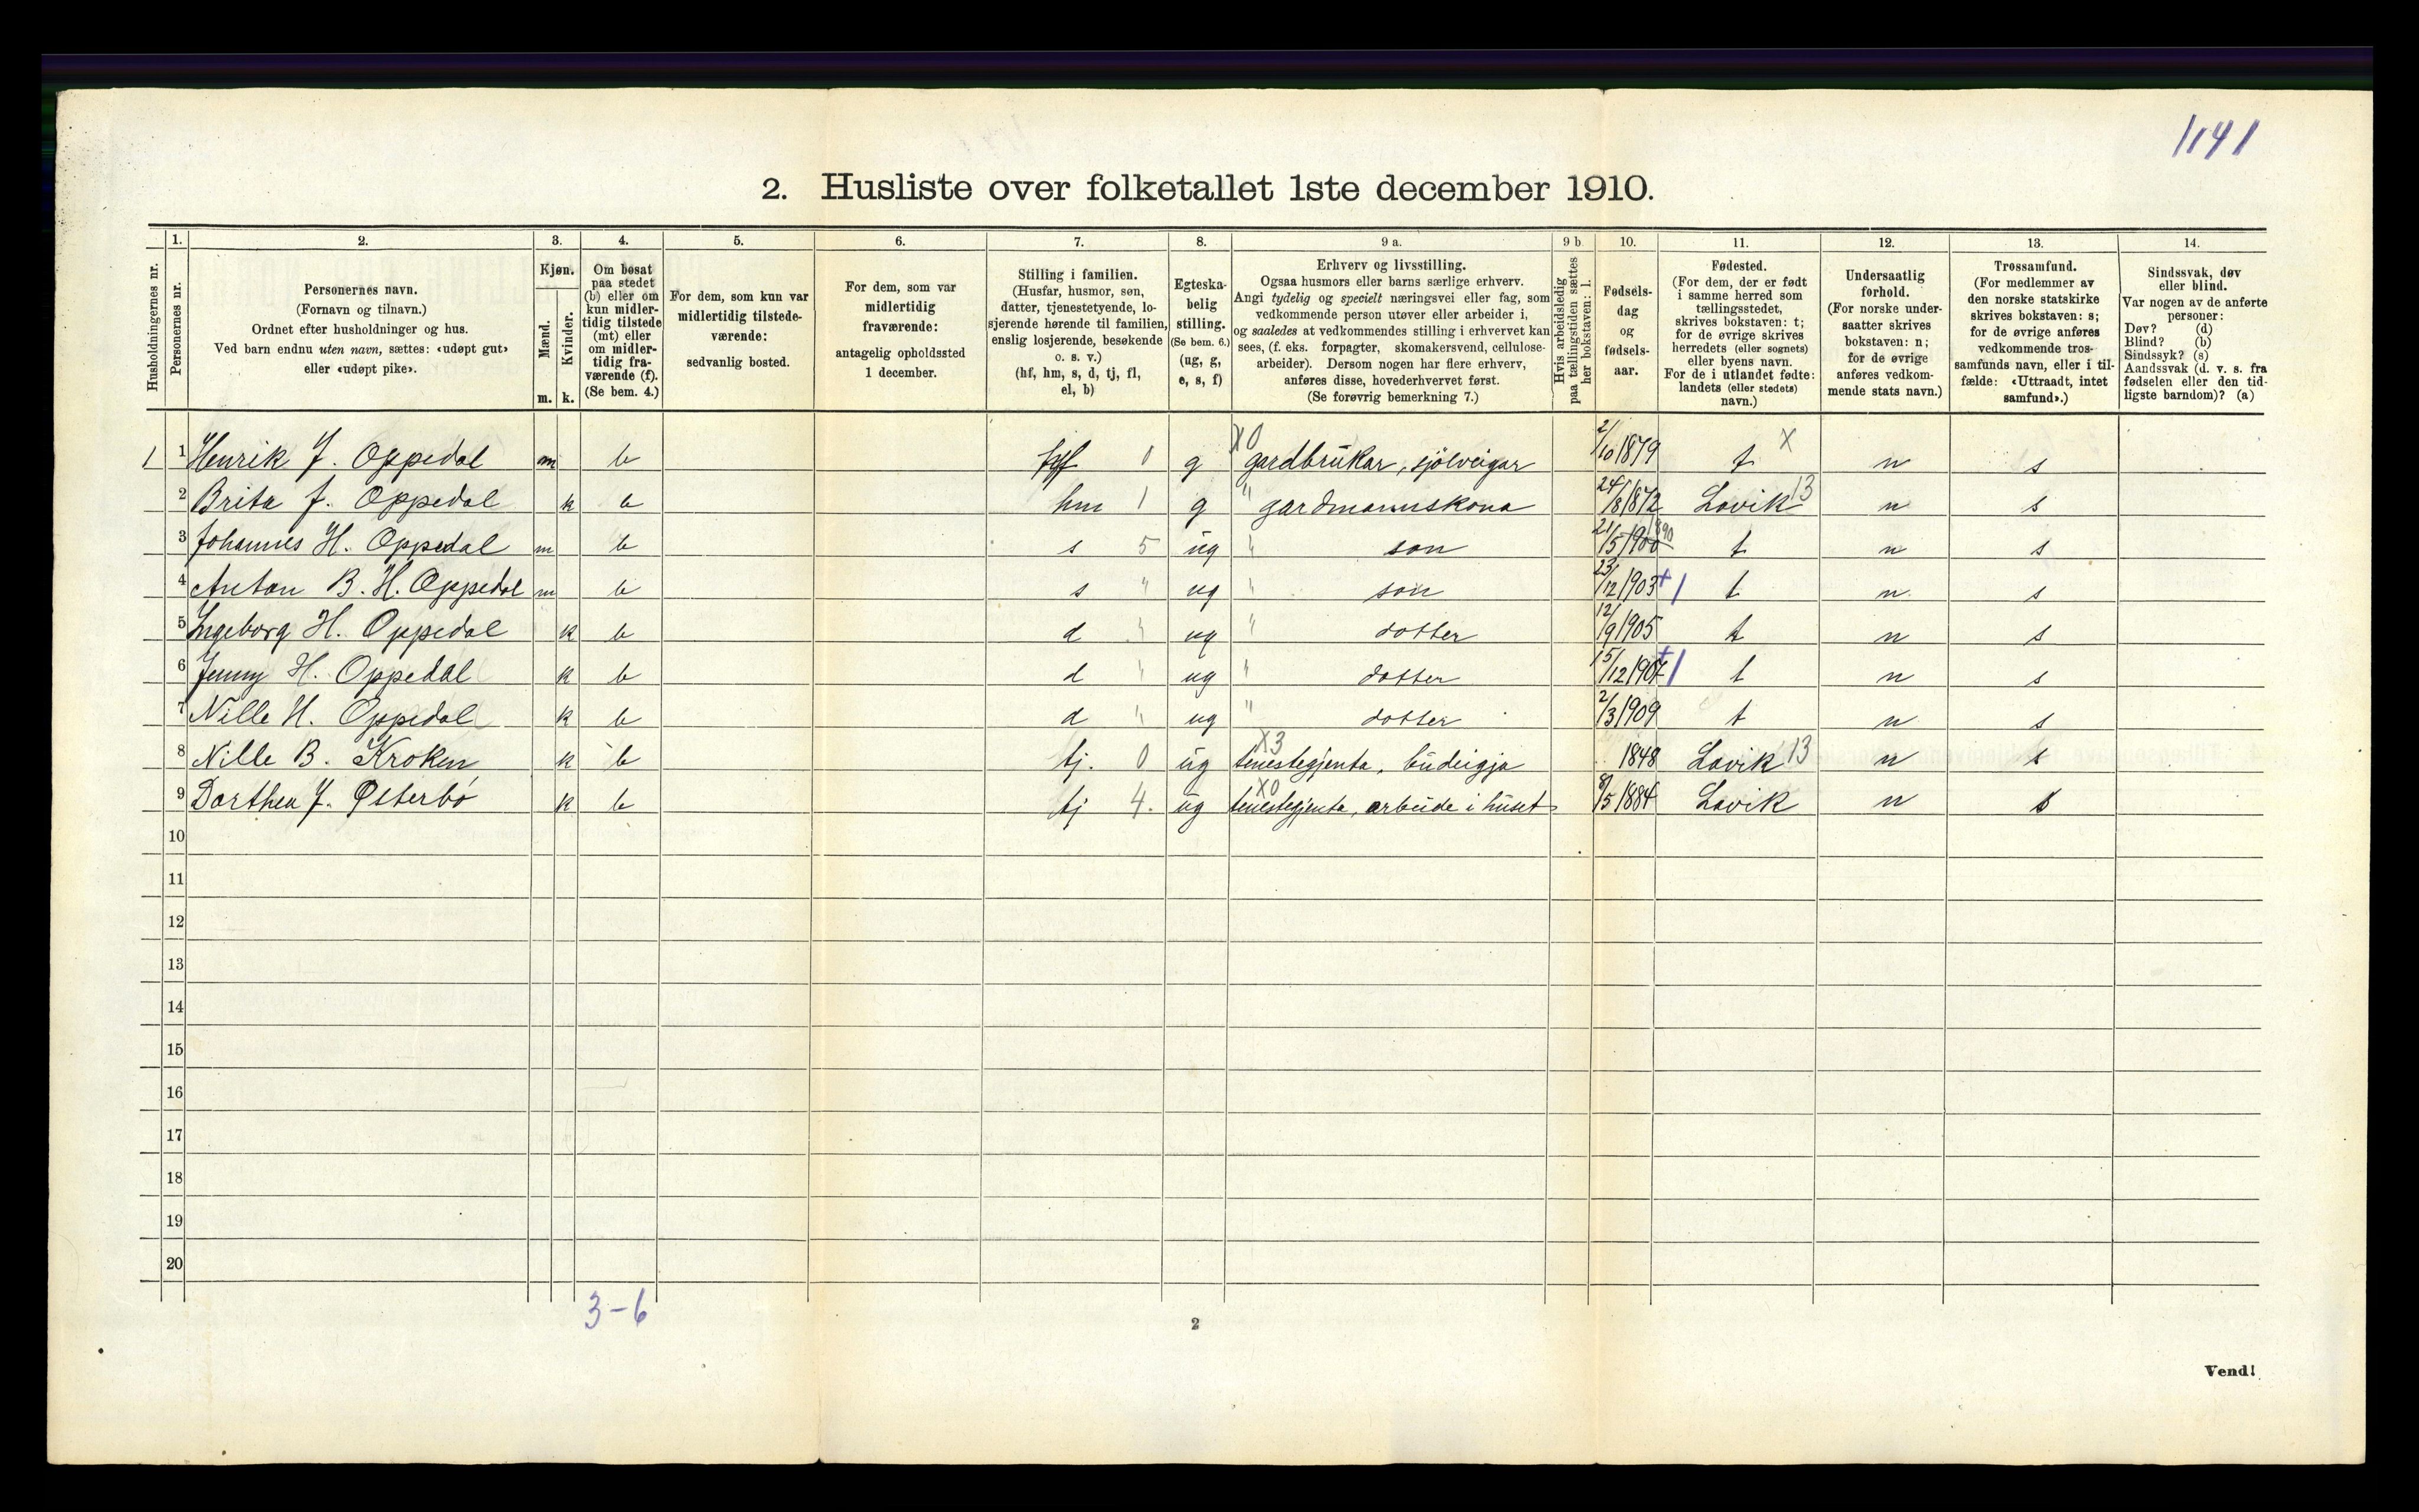 1141
2. Husliste over folketallet 1ste december 1910.
Husholdningernes nr.
1. Personernes nr.
2. Personernes navn.
(Fornavn og tilnavn.)
Ordnet efter husholdninger og hus.
Ved barn endnu uten navn, sættes: «udøpt gut»
eller «udøpt pike».
3. Kjøn.
Mænd. m.
Kvinder. k.
4. Om bosat
paa stedet
(b) eller om
kun midler-
tidig tilstede
(mt) eller
om midler-
tidig fra-
værende (f).
(Se bem. 4.)
5. For dem, som kun var
midlertidig tilstede-
værende:
sedvanlig bosted.
6. For dem, som var
midlertidig
fraværende:
antagelig opholdssted
1 december.
7. Stilling i familien.
(Husfar, husmor, søn,
datter, tjenestetyende, lo-
sjerende hørende til familien,
enslig losjerende, besøkende
o. s. v.)
(hf, hm, s, d, tj, fl,
el, b)
8. Egteska-
belig
stilling.
(Se bem. 6.)
(ug, g,
e, s, f)
9 a. Erhverv og livsstilling.
Ogsaa husmors eller barns særlige erhverv.
Angi tydelig og specielt næringsvei eller fag, som
vedkommende person utøver eller arbeider i,
og saaledes at vedkommendes stilling i erhvervet kan
sees, (f. eks. forpagter, skomakersvend, cellulose-
arbeider). Dersom nogen har flere erhverv,
anføres disse, hovederhvervet først.
(Se forøvrig bemerkning 7.)
9 b. Hvis arbeidsledig
paa tællingstiden sættes
her bokstaven: l.
10. Fødsels-
dag
og
fødsels-
aar.
11. Fødested.
(For dem, der er født
i samme herred som
tællingsstedet,
skrives bokstaven: t;
for de øvrige skrives
herredets (eller sognets)
eller byens navn.
For de i utlandet fødte:
landets (eller stedets)
navn.)
12. Undersaatlig
forhold.
(For norske under-
saatter skrives
bokstaven: n;
for de øvrige
anføres vedkom-
mende stats navn.)
13. Trossamfund.
(For medlemmer av
den norske statskirke
skrives bokstaven: s;
for de øvrige anføres
vedkommende tros-
samfunds navn, eller i til-
fælde: «Uttraadt, intet
samfund».)
14. Sindssvak, døv
eller blind.
Var nogen av de anførte
personer:
Døv? (d)
Blind? (b)
Sindssyk? (s)
Aandssvak (d. v. s. fra
fødselen eller den tid-
ligste barndom)? (a)
X0 X
1 1 Henrik J. Oppedal m b hf 0 g gardbrukar, sjölveigar 2/10 1879 t n s
2 Brita J. Oppedal k b hm 1 g " gardmannskona 24/8 1872 Lavik 13 n s
3 Johannes H. Oppedal m b s 5 ug " son 21/5 1900 t n s
4 Anton B. H. Oppedal m b s " ug " son 23/12 1903 + 1 t n s
5 Ingeborg H. Oppedal k b d " ug " dotter 12/9 1905 t n s
6 Jenny H. Oppedal k b d " ug " dotter 15/12 1907 + 1 t n s
7 Nille H. Oppedal k b d " ug " dotter 2/3 1909 t n s
X3
8 Nille B. Kroken k b tj. 0 ug tenestegjenta, budeigja 1848 Lavik 13 n s
X0
9 Dorthea J. Østerbö k b tj 4. ug tenestegjenta, arbeide i huset 8/5 1884 Lavik n s
10
11
12
13
14
15
16
17
18
19
20
3-6
2
Vend!